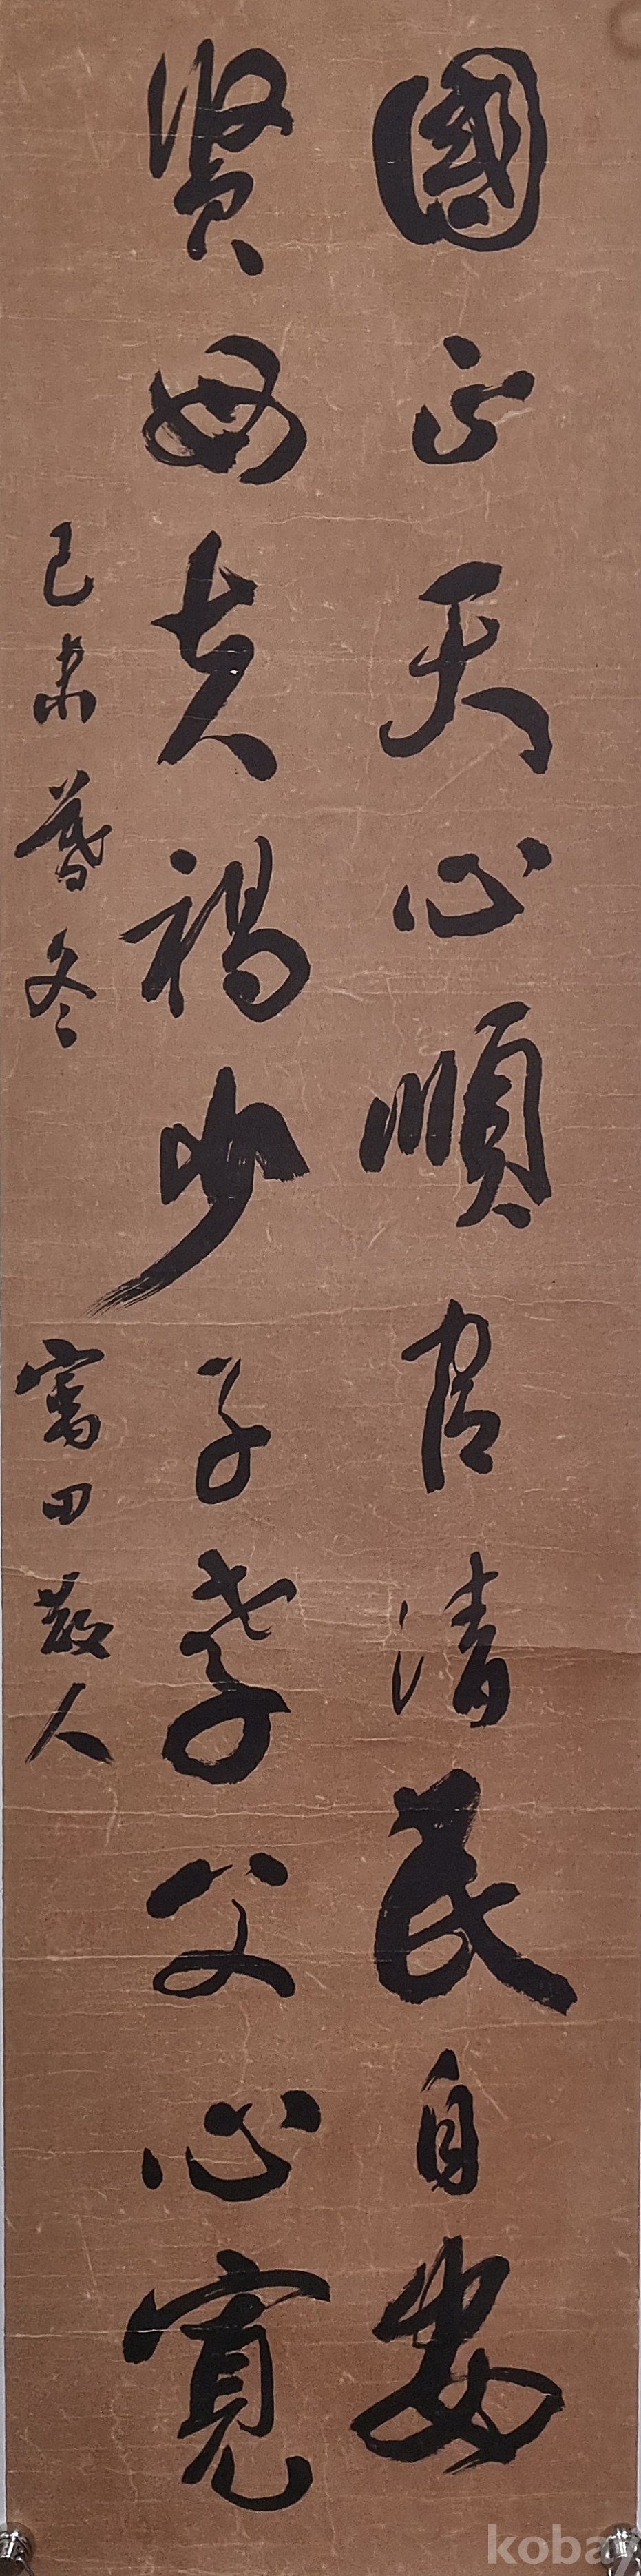 國正天心順官清民自安
賢母夫禍少子孝父心寬
己未暮冬 寓田散人
kobay